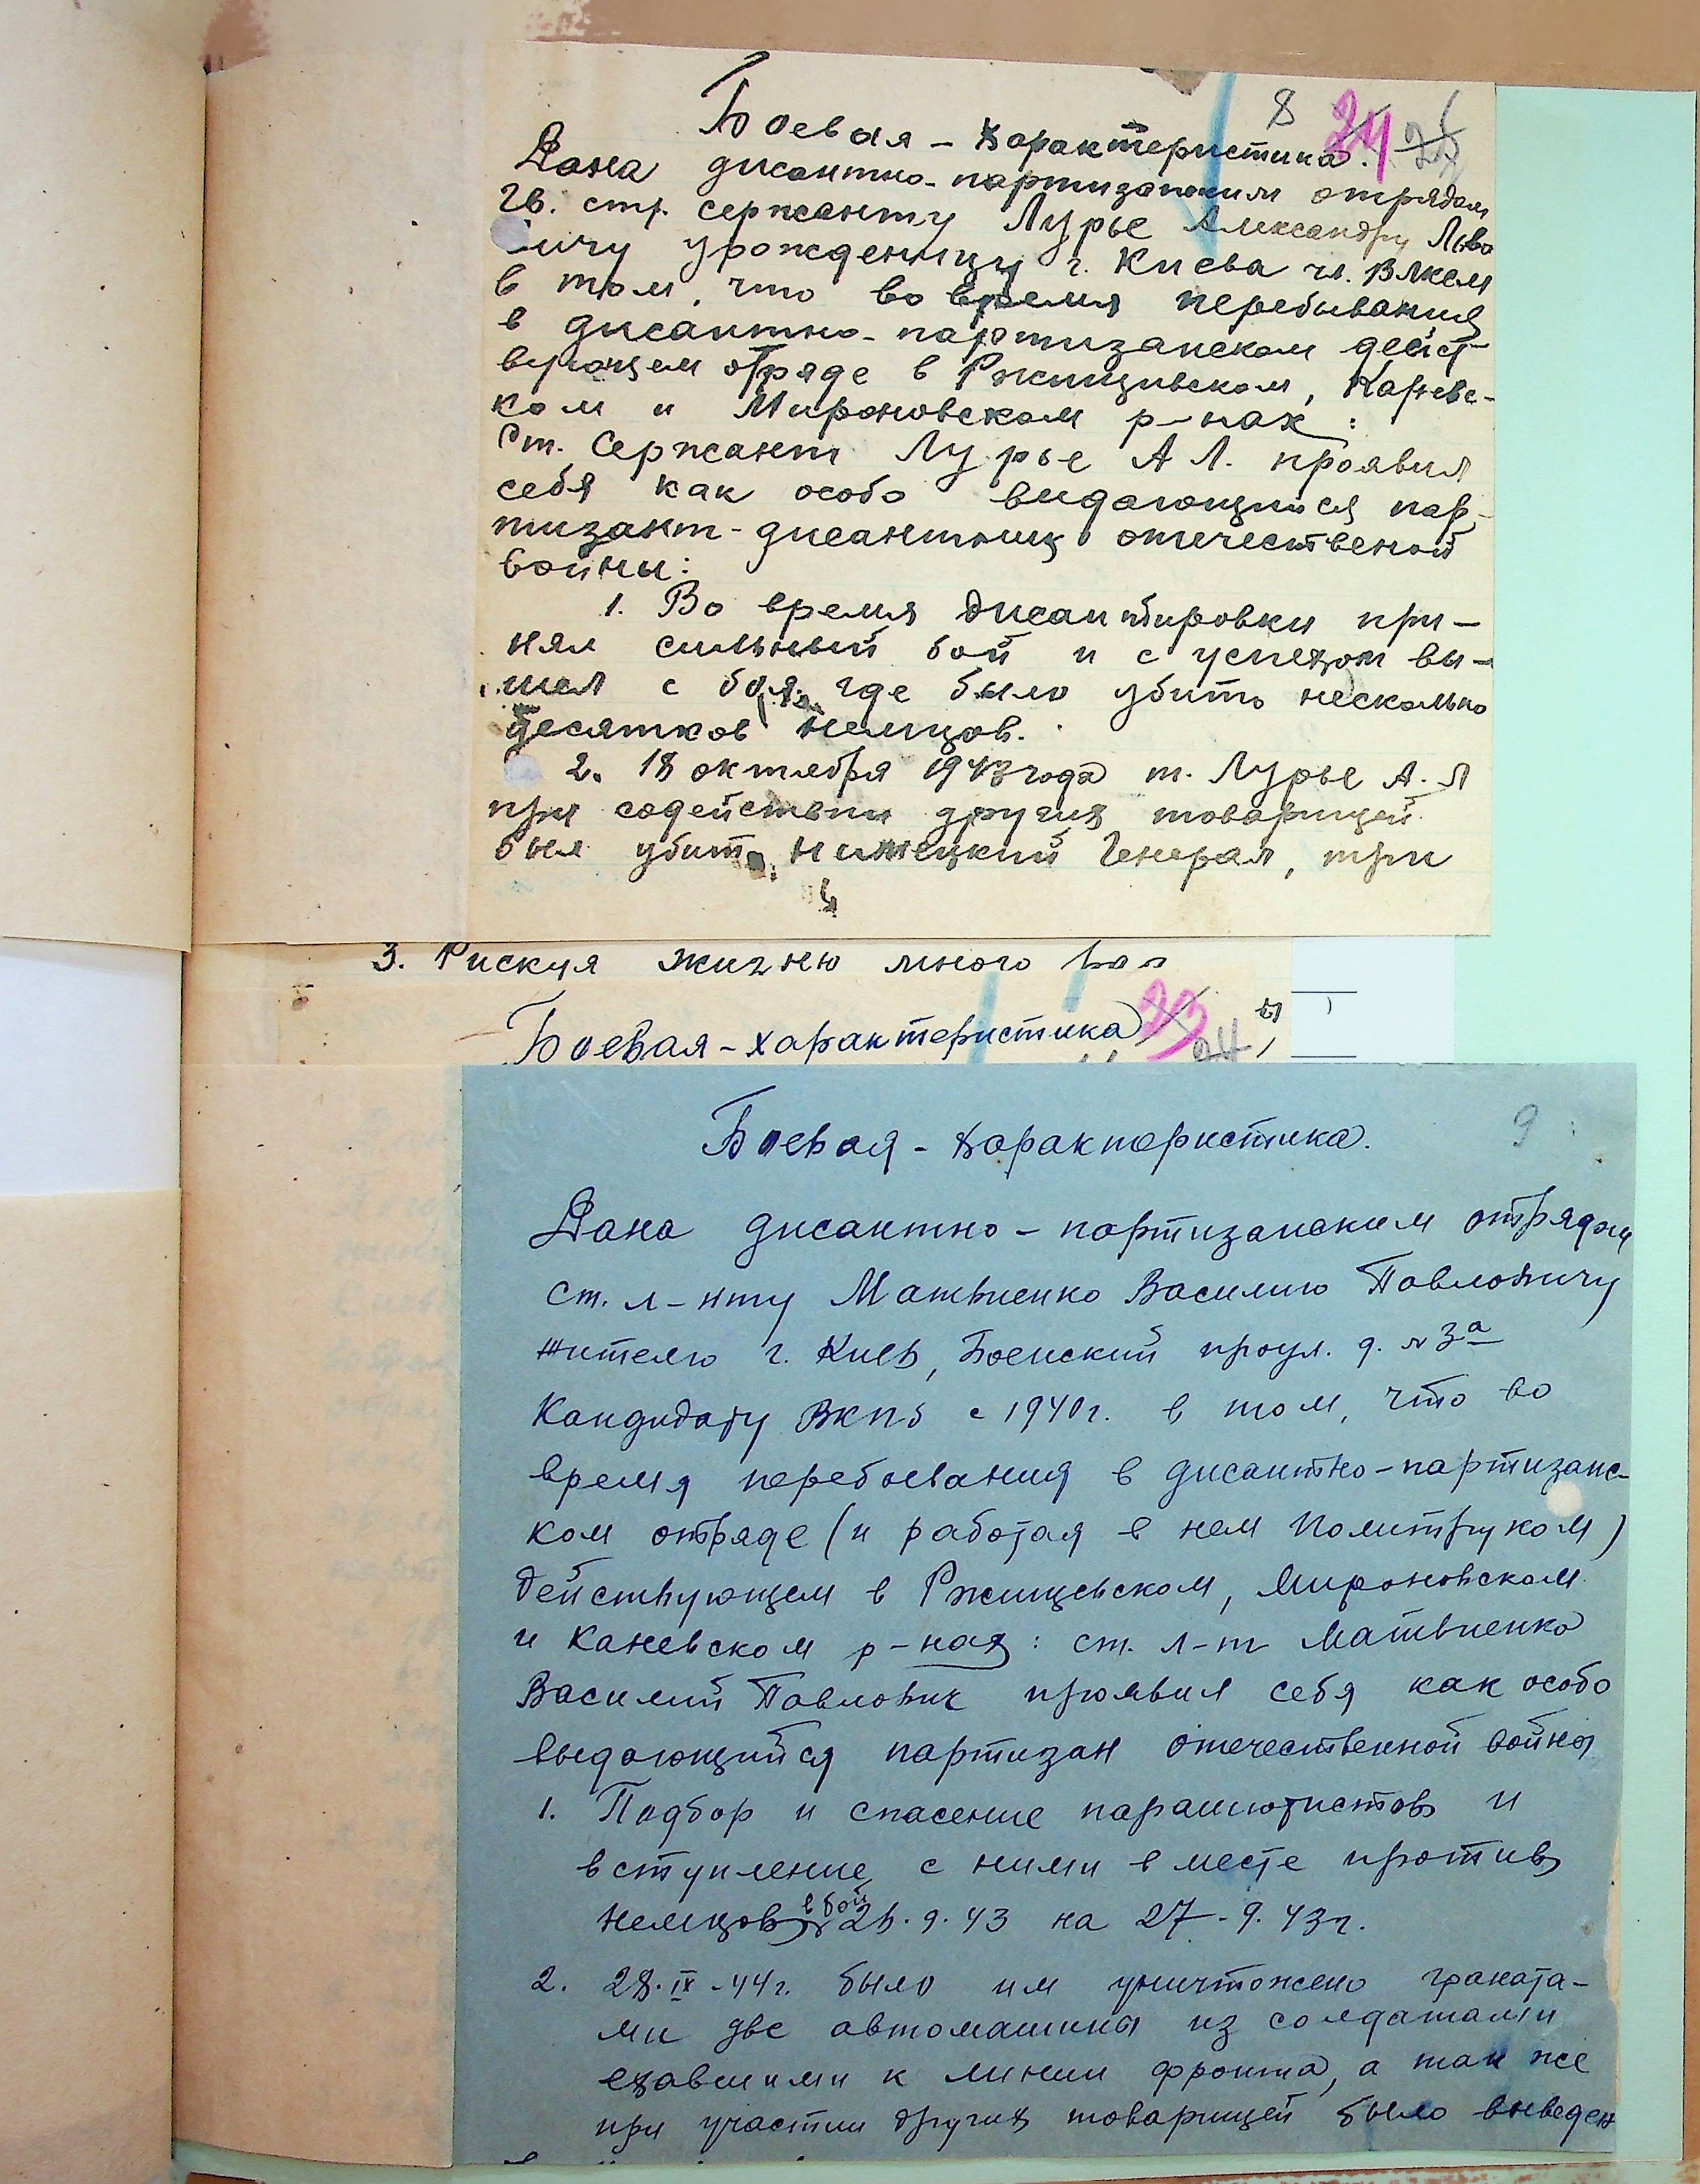 8 24
Боевая - характеристика.
Дана дисантно-партизанским отрядом
Гв. стр. сержанту Лурье Александру Льво
вичу урожденицу г. Киева чл. ВЛКСМ
в том, что во время перебывания
в дисантно-партизанском дейст-
вующем отряде в Ржищивском, Каневс-
ком и Мироновском р-нах:
Ст. Сержант Лурье А Л. проявил
себя как особо видающийся пар-
тизант-дисантник отечественой
войны:
1. Во время дисантировки при-
нял сильный бой и с успехом вы-
шел с боя. где было убито несколько
десятков немцов.
2. 18 октября 1943 года т. Лурье А. Л
при содействии других товарищей
был убит нимецкий Генерал, три
3. Рискуя жизнею много
Боевая - характеристика 23 24
9
Боевая - характеристика.
Дана дисантно - партизанским отрядом
ст. л-нту Матвиенко Василию Павловичу
жителю г. Киев, проул. д. № 3а
Кандидату ВКПб с 1940 г. в том, что во
время перебывания в дисантно-партизанс-
ком отряде (и работая в нем Политруком)
действующем в Ржищевском, Мироновском
и Каневском р-нах: ст. л-т Матвиенко
Василий Павлович проявил себя как особо
выдающийся партизан отечественной войны
1. Подбор и спасение парашютистов и
вступление с ними в месте против
немцов в бой 26.9.43 на 27.9.43г.
2. 28.IX-44г. было им уничтожено граната-
ми две автомашины из солдатами
ехавшими к линии фронта, а так же
при участии других товарищей было выведен